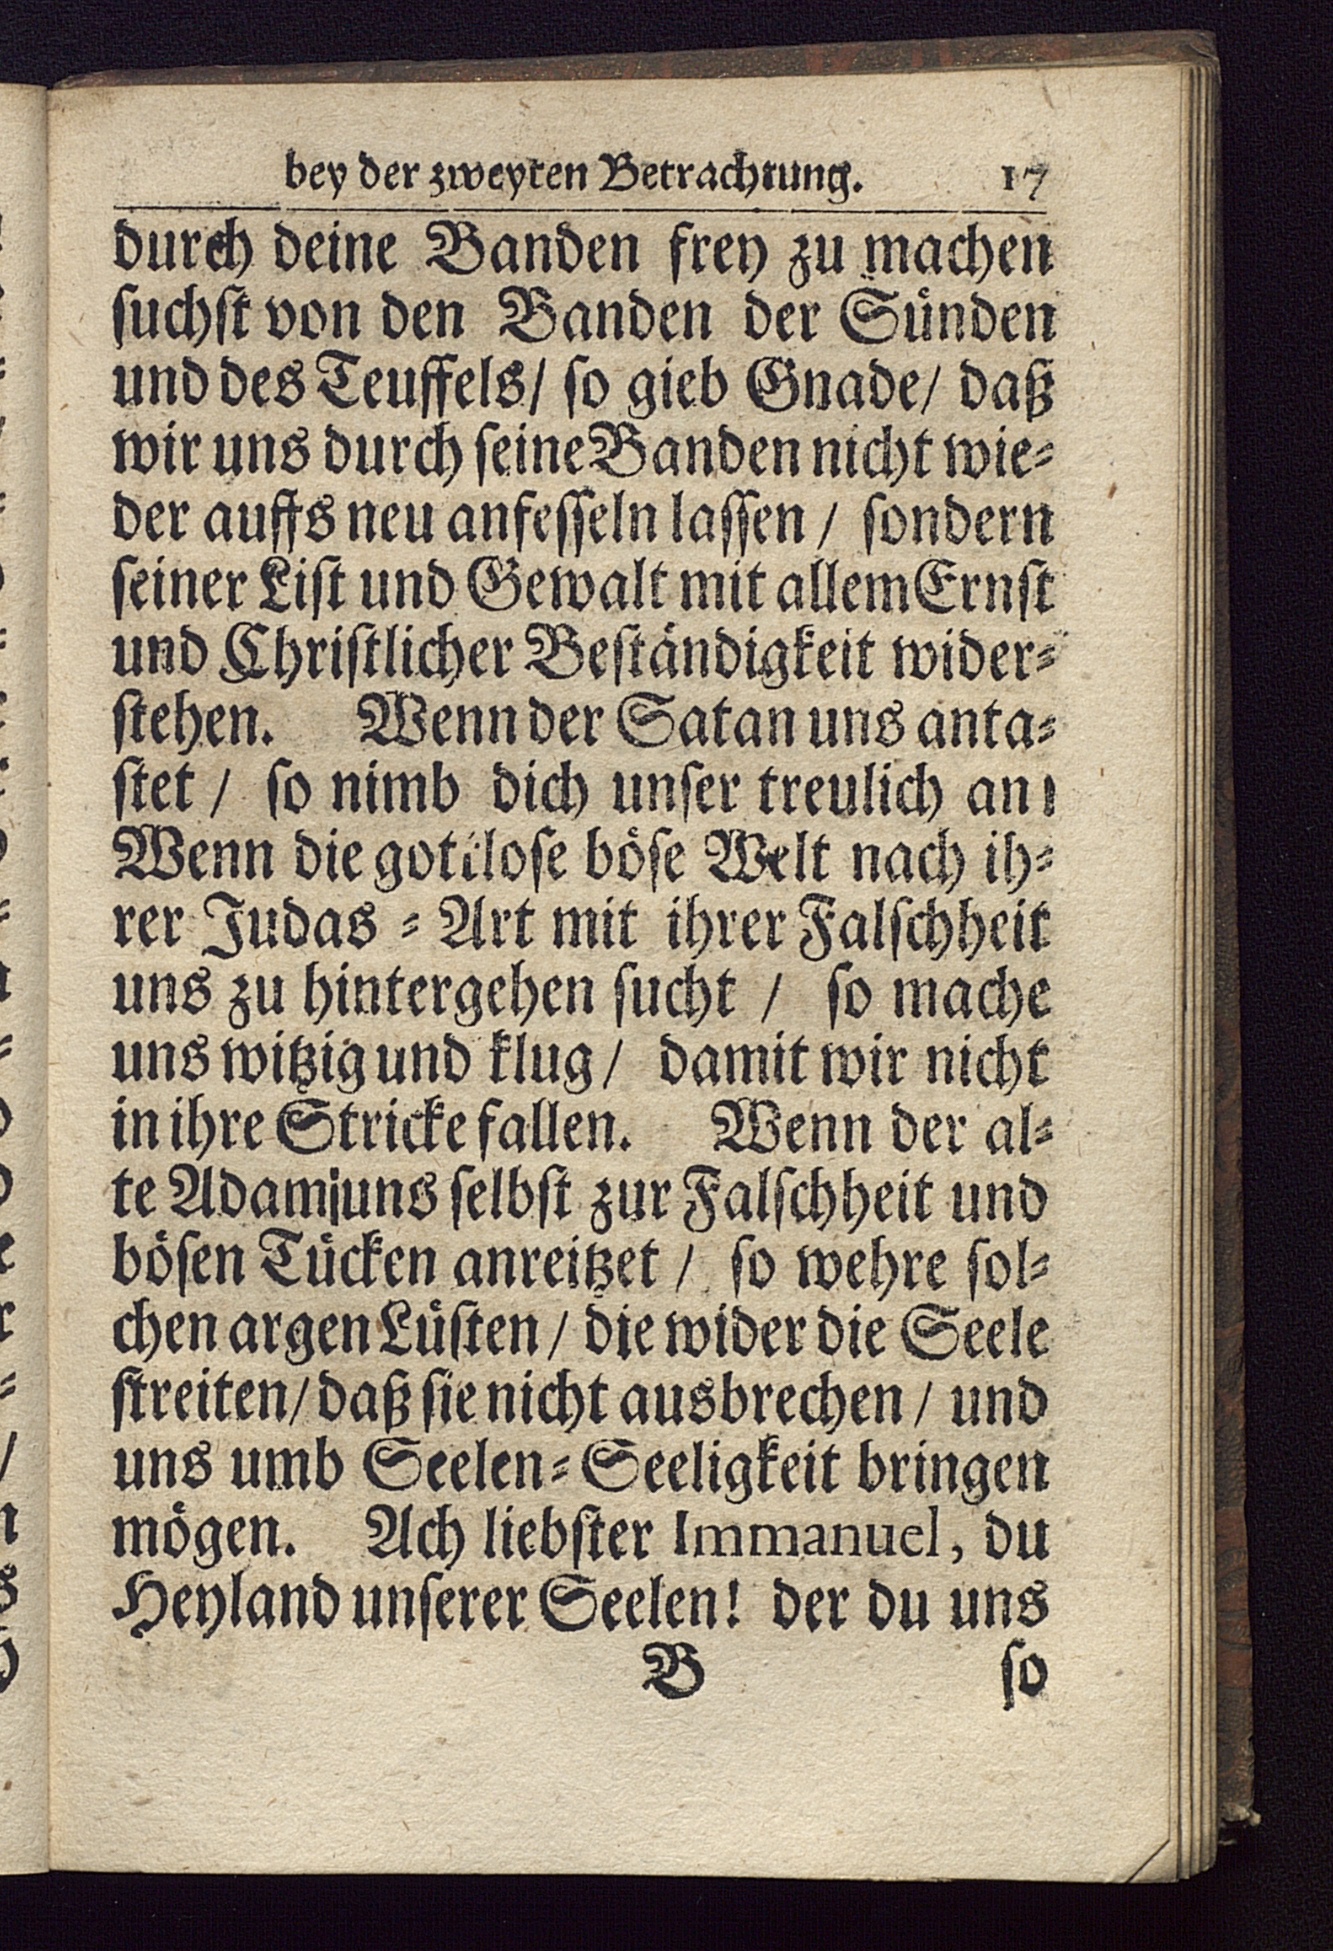 bey der zweyten Betrachtung. 17
durch deine Banden frey zu machen
suchſt von den Banden der Sünden
und des Teuffels/ ſo gieb Gnade/ daß
wir uns durch ſeine Banden nicht wie⸗
der auffs neu anfeſſeln laſſen / ſondern
ſeiner Liſt und Gewalt mit allem Ernſt
und Chriſtlicher Beſtändigkeit wider⸗
ſtehen. Wenn der Satan uns anta⸗
ſtet / ſo nimb dich unſer treulich an
Wenn die gottloſe böſe Welt nach ih⸗
rer Judas ⸗ Art mit ihrer Falſchheit
uns zu hintergehen ſucht / ſo mache
uns witzig und klug / damit wir nicht
in ihre Stricke fallen. Wenn der al⸗
te Adam uns ſelbſt zur Falſchheit und
böſen Tücken anreitzet / ſo wehre ſol⸗
chen argen Lüſten / die wider die Seele
ſtreiten/ daß ſie nicht ausbrechen / und
uns umb Seelen⸗Seeligkeit bringen
mögen. Ach liebſter Immanuel, du
Heyland unſerer Seelen! der du uns
B ſo